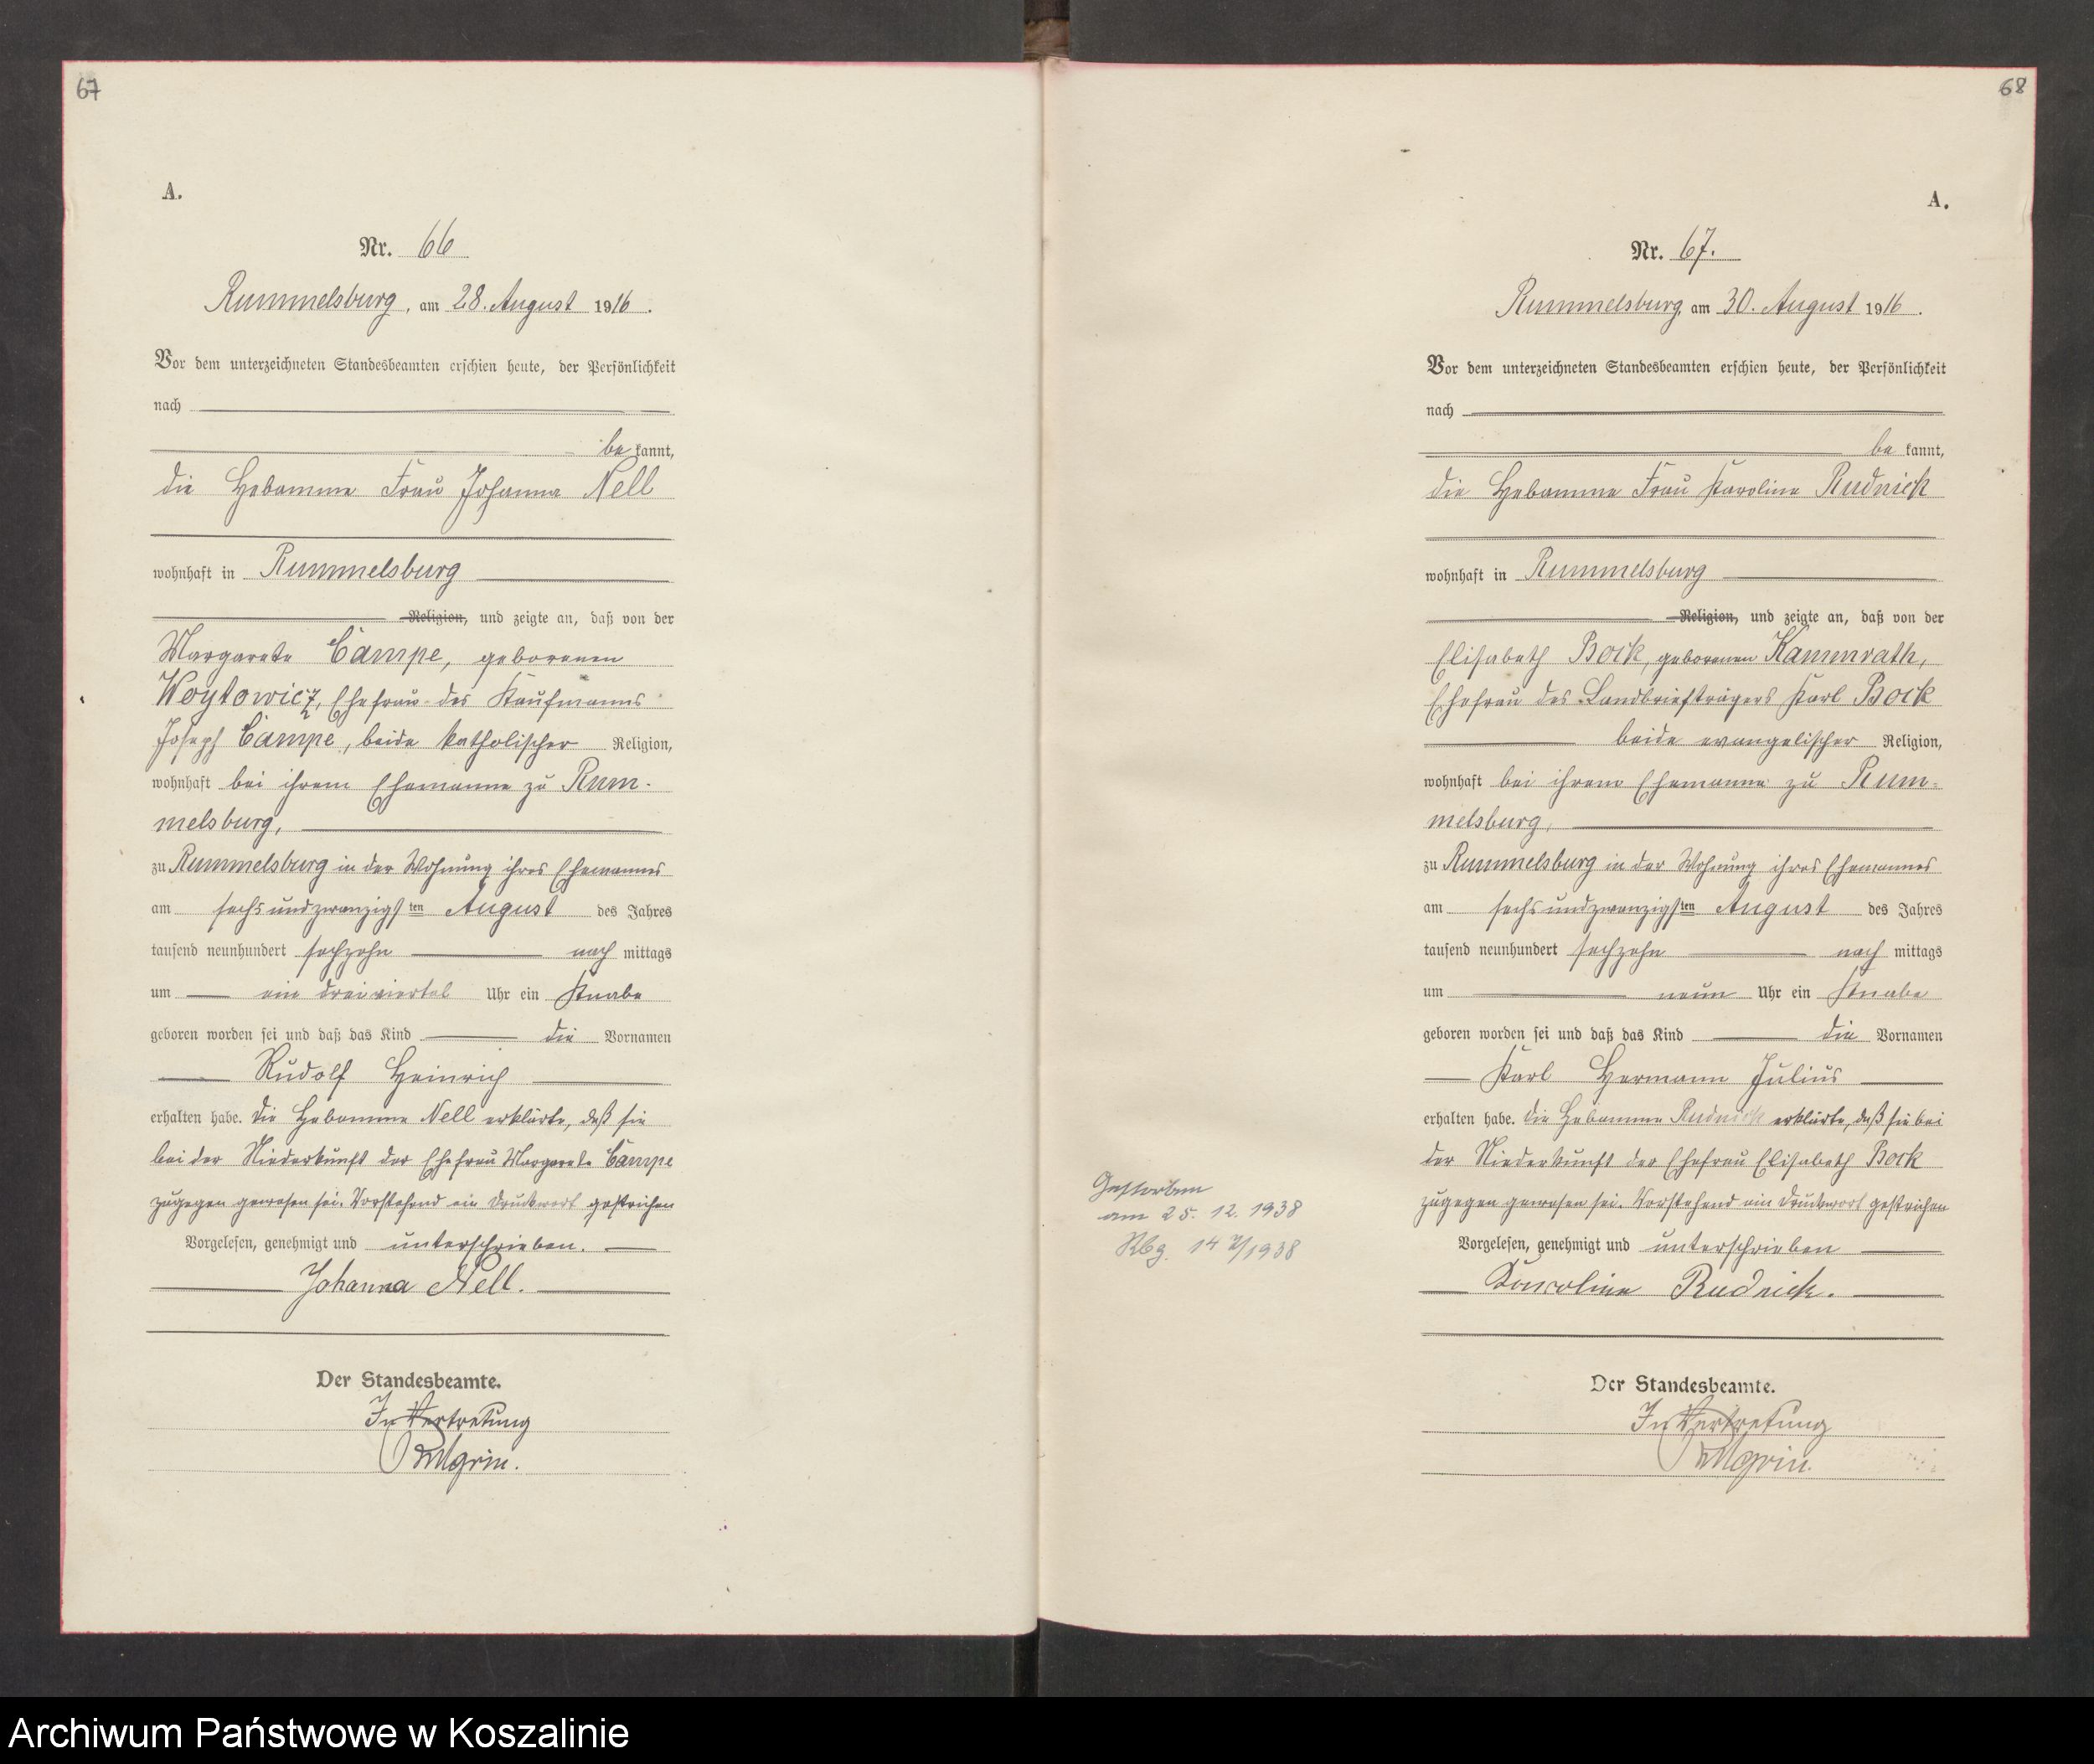 67
A.
Nr. 66
Rummelsburg, am 28. August 1916.
Vor dem unterzeichneten Standesbeamten erschien heute, der Persönlichkeit
nach
be kannt,
die Hebamme Frau Johanna Nell
wohnhaft in Rummelsburg
Religion, und zeigte an, daß von der
Margarete Campe, geborenen
Woytowicz, Ehefrau des Kaufmanns
Joseph Campe, beide katholischer Religion,
wohnhaft bei ihrem Ehemanne zu Rum-
melsburg,
zu Rummelsburg in der Wohnung ihres Ehemannes
am sechsundzwanzigsten August des Jahres
tausend neunhundert sechzehn nach mittags
um ein dreiviertel Uhr ein Knabe
geboren worden sei und daß das Kind die Vornamen
Rudolf Heinrich
erhalten habe. Die Hebamme Nell erklärte, daß sie
bei der Niederkunft der Ehefrau Margarete Campe
zugegen gewesen sei. Vorstehend ein Druckwort gestrichen
Vorgelesen, genehmigt und unterschrieben.
Johanna Nell.
Der Standesbeamte.
In Vertretung
68
A.
Nr. 67.
Rummelsburg, am 30. August 1916.
Vor dem unterzeichneten Standesbeamten erschien heute, der Persönlichkeit
nach
be kannt,
die Hebamme Frau Karoline Rudnick
wohnhaft in Rummelsburg
Religion, und zeigte an, daß von der
Elisabeth Bock, geborenen Kammrath,
Ehefrau des Landbriefträgers Karl Bock
beide evangelischer Religion,
wohnhaft bei ihrem Ehemanne zu Rum-
melsburg,
zu Rummelsburg in der Wohnung ihres Ehemannes
am sechsundzwanzigsten August des Jahres
tausend neunhundert sechzehn nach mittags
um neun Uhr ein Knabe
geboren worden sei und daß das Kind die Vornamen
Karl Hermann Julius
erhalten habe. Die Hebamme Rudnick erklärte, daß sie bei
der Niederkunft der Ehefrau Elisabeth Bock
zugegen gewesen sei. Vorstehend ein Druckwort gestrichen
Vorgelesen, genehmigt und unterschrieben
Karoline Rudnick.
Der Standesbeamte.
In Vertretung
Gestorben
am 25. 12. 1938
Rbg. /1938
Archiwum Państwowe w Koszalinie